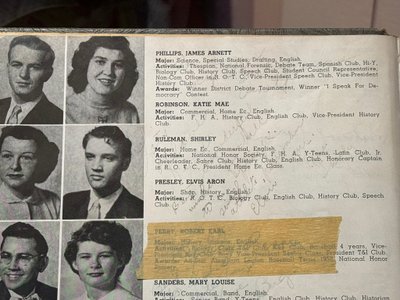 PHILLIPS, JAMES ARNETT
Major: Science, Special Studies, Drafting, English.
Activities: Thespian, National Forensic, Debate Team, Spanish Club, Hi-Y,
Biology Club, History Club, Speech Club, Student Council Representative,
Non-Com Officer in R. O. T. C., Vice-President Speech Club, Vice-President
History Club.
Awards: Winner District Debate Tournament, Winner "I Speak For De-
mocracy" Contest.
ROBINSON, KATIE MAE
Major: Commercial, Home Ec., English.
Activities: F. H. A., History Club, English Club, Vice-President History
Club.
RULEMAN, SHIRLEY
Major: Home Ec., Commercial, English.
Activities: National Honor Society, F. H. A., Y-Teens, Latin Club, Jr.
Cheerleader, Sabre Club, History Club, English Club, Honorary Captain
in R. O. T. C., President Home Ec. Class.
PRESLEY, ELVIS ARON
Major: Shop, History, English.
Activities: R. O. T. C., Biology Club, English Club, History Club, Speech
Club.
PERRY, ROBERT EARL
Major: History, English.
4 years, Vice-
President T&I Club.
National Honor
SANDERS, MARY LOUISE
Major: Commercial, Band, English.